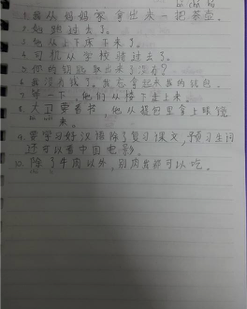 1. 我从妈妈家拿出来一把茶壶。
2. 她跑过去了。
3. 他从上下床下来了。
4. 司机从学校接过去了。
5. 你的钥匙取出来了没有？
6. 我没有钱了，我 拿起来我的钱包。
7. 等一下，他们从楼下走上来。
8. 大卫 爱看书，他从 提包里拿上
来。
9. 要学习好汉语除了复习课文，预习生词
还可以看中国电影。
10. 除了牛肉以外，别肉我都可以吃。